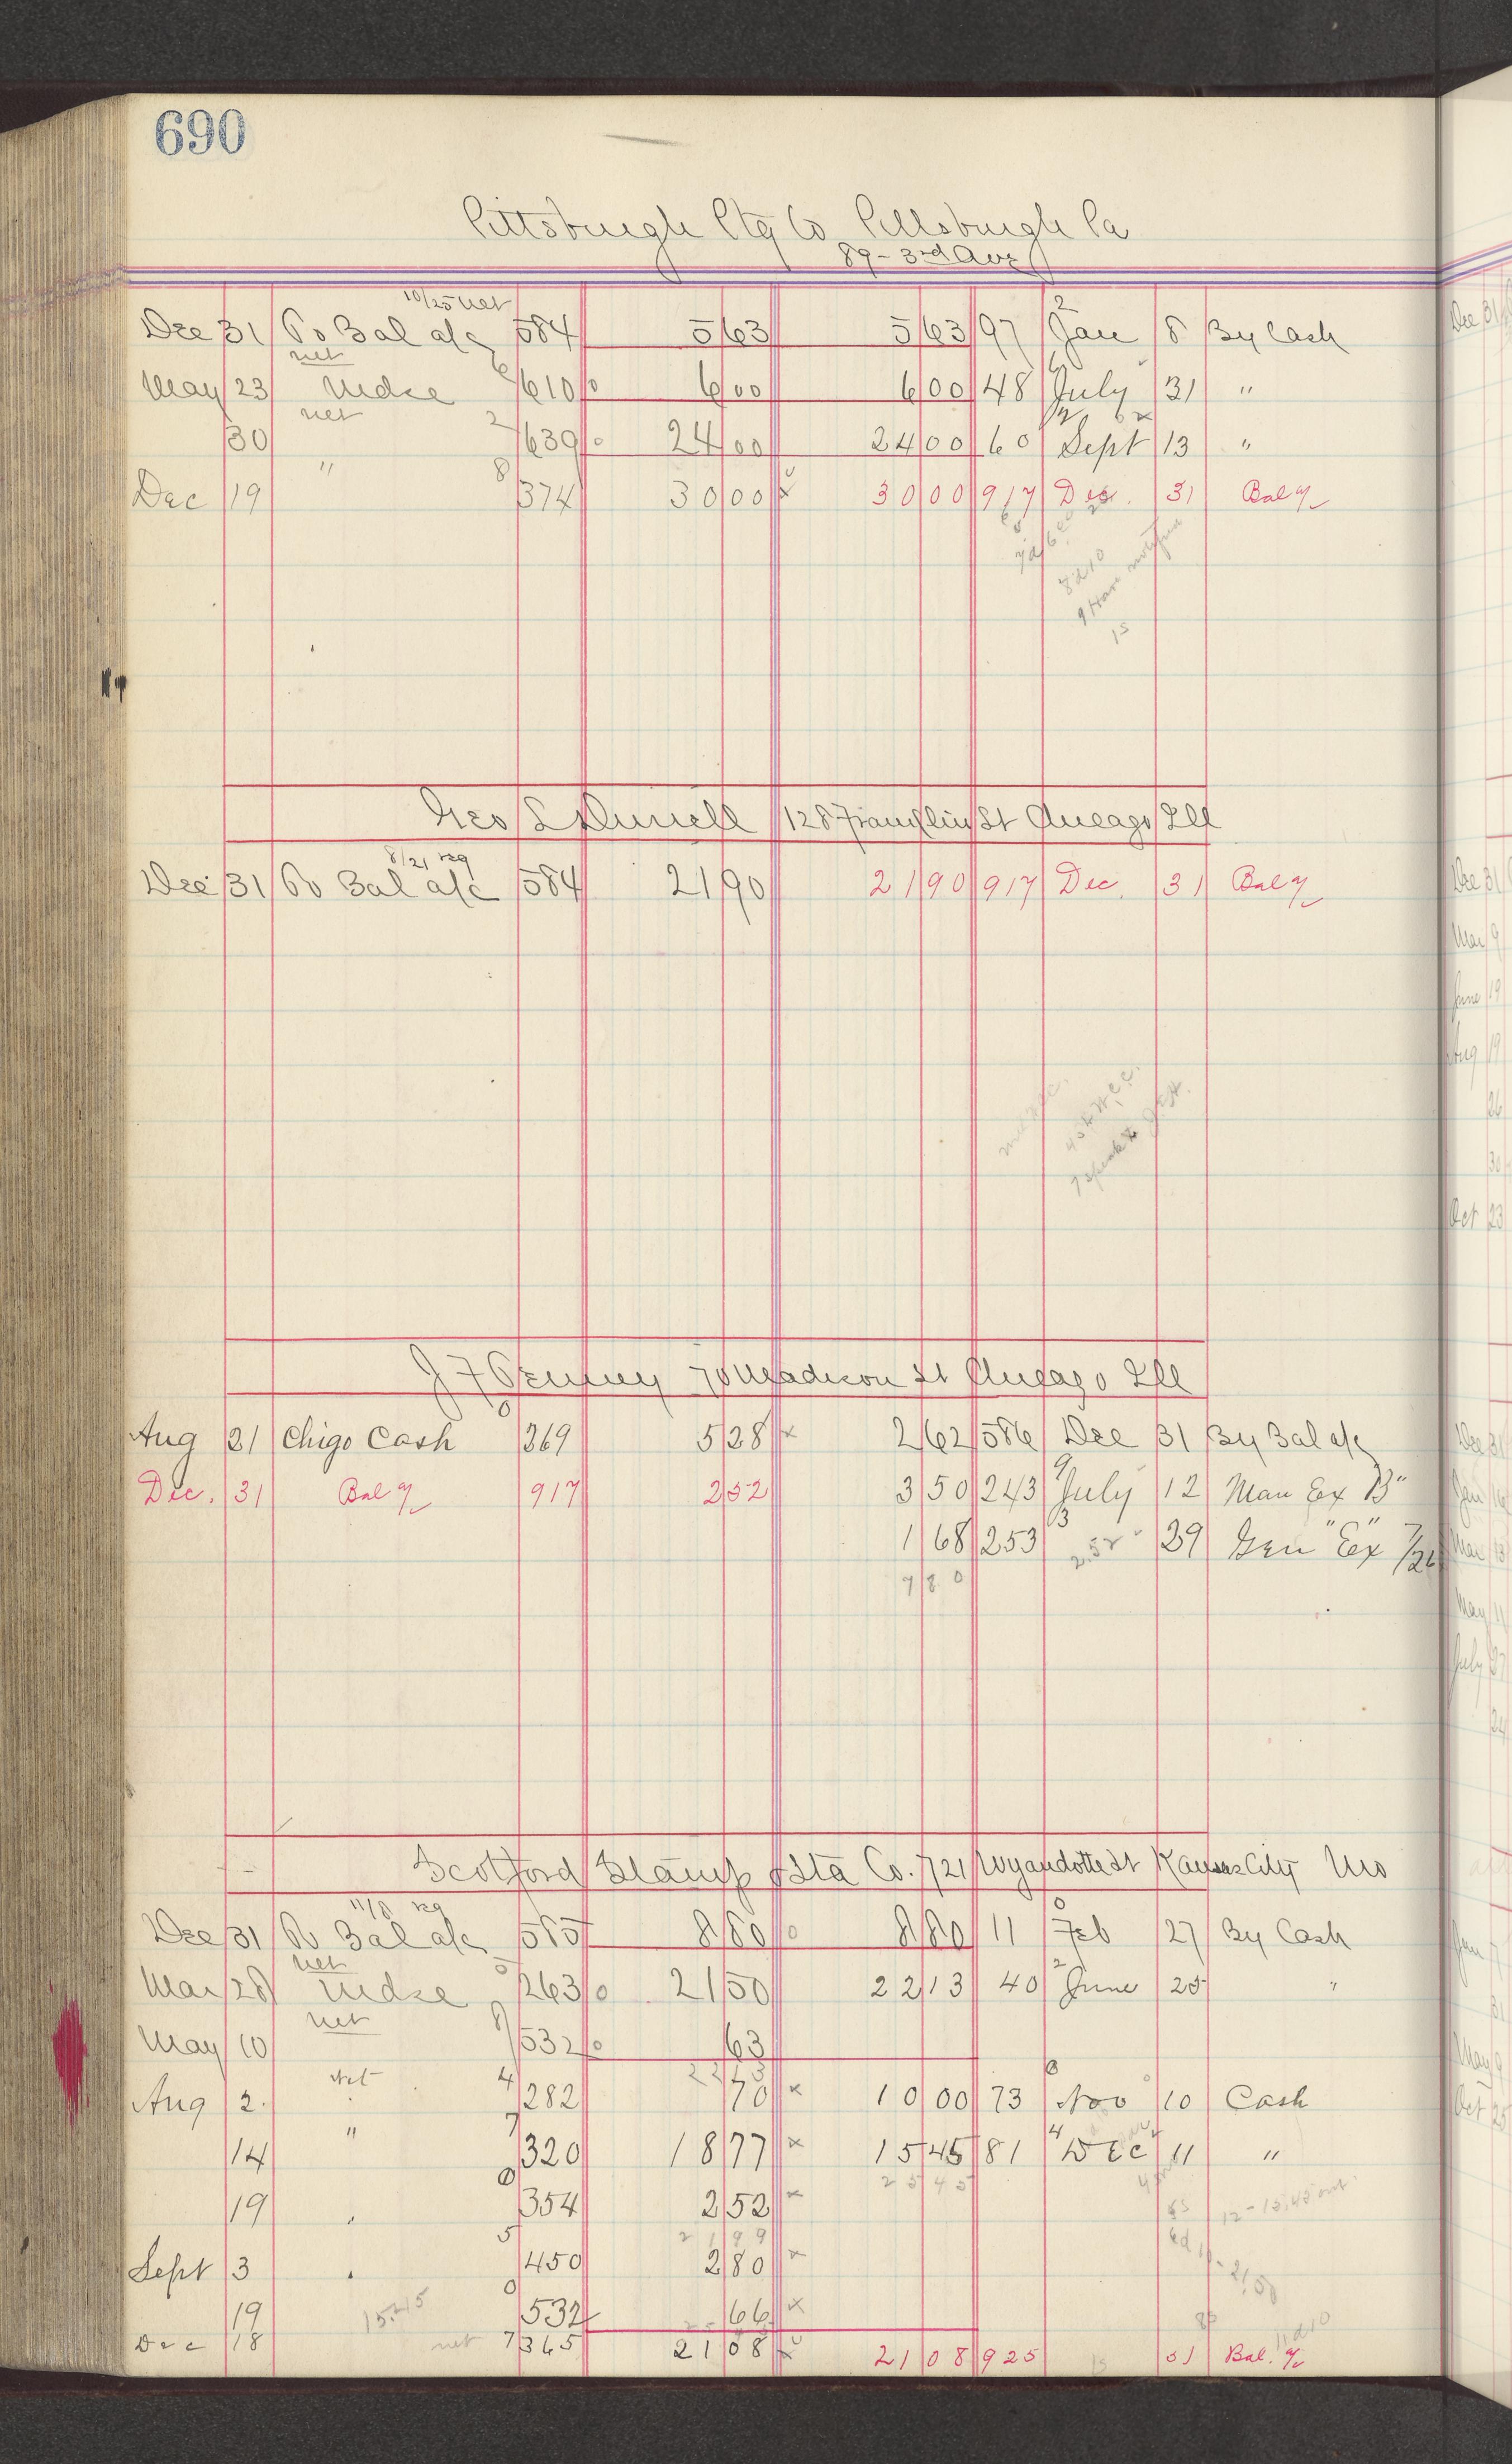 690
Pittsburgh Ptg Co Pittsburgh Pa
89 - 3rd Ave
10/25 net
Dec 31 To Bal a/c 584 5 63 5 63 97 Jan 8 By Cash
net
May 23 Mdse 610 6 00 6 00 48 July 31 "
net
30 639 24 00 24 00 60 Sept 13 "
Dec 19 " 374 30 00 30 00 917 Dec. 31 Bal
15
Geo L 128 Franklin St Chicago Ill
8/21 reg
Dec 31 To Bal a/c 584 21 90 21 90 917 Dec. 31 Bal
J F Penney 70 Madison St Chicago Ill
Aug 21 Chigo Cash 369 5 28 x 2 62 586 Dec 31 By Bal a/c
Dec. 31 Bal 917 2 52 3 50 243 July 12 Man Ex B"
1 68 253 2.52 29 Gen "Ex" 7/26
7 8 0
Scotford Stamp & Sta Co. 721 Wyandotte St Kansas City Mo
11/8 reg
Dec 31 To Bal a/c 585 8 80 8 80 11 Feb 27 By Cash
net
Mar 28 Mdse 263 21 50 22 13 40 June 25 "
net
May 10 532 63
22 13
Aug 2 Net 282 70 x 10 00 73 Nov 10 Cash
14 " 320 18 77 x 15 45 81 Dec 11 "
25 45
19 354 2 52 x 12 - 15.45 out
21 99
Sept 3 450 2 80 x
19 15.45 532 66 x
Dec 18 net 365 21 08 21 08 925 31 Bal.